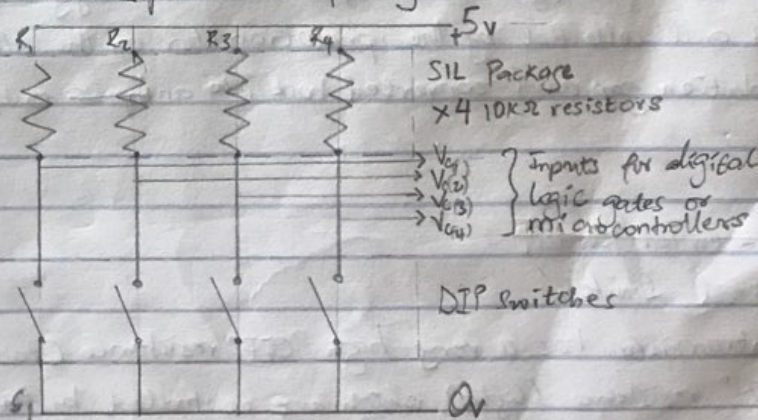 R1 R2 R3 R4 +5v
SIL Package
×4 10KΩ resistors
V(1)
V(2)
V(3)
V(4)
Inputs for digital
logic gates or
microcontrollers
DIP Switches
S1 0v